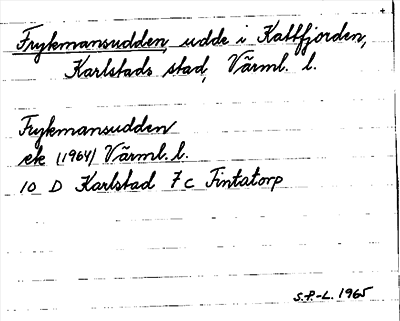 Frykmansudden, udde i Kattfjorden,
Karlstads stad, Värml. l.
Frykmansudden
ek (1964) Värml. l.
10 D Karlstad 7 c Fintatorp
S.P.-L. 1965